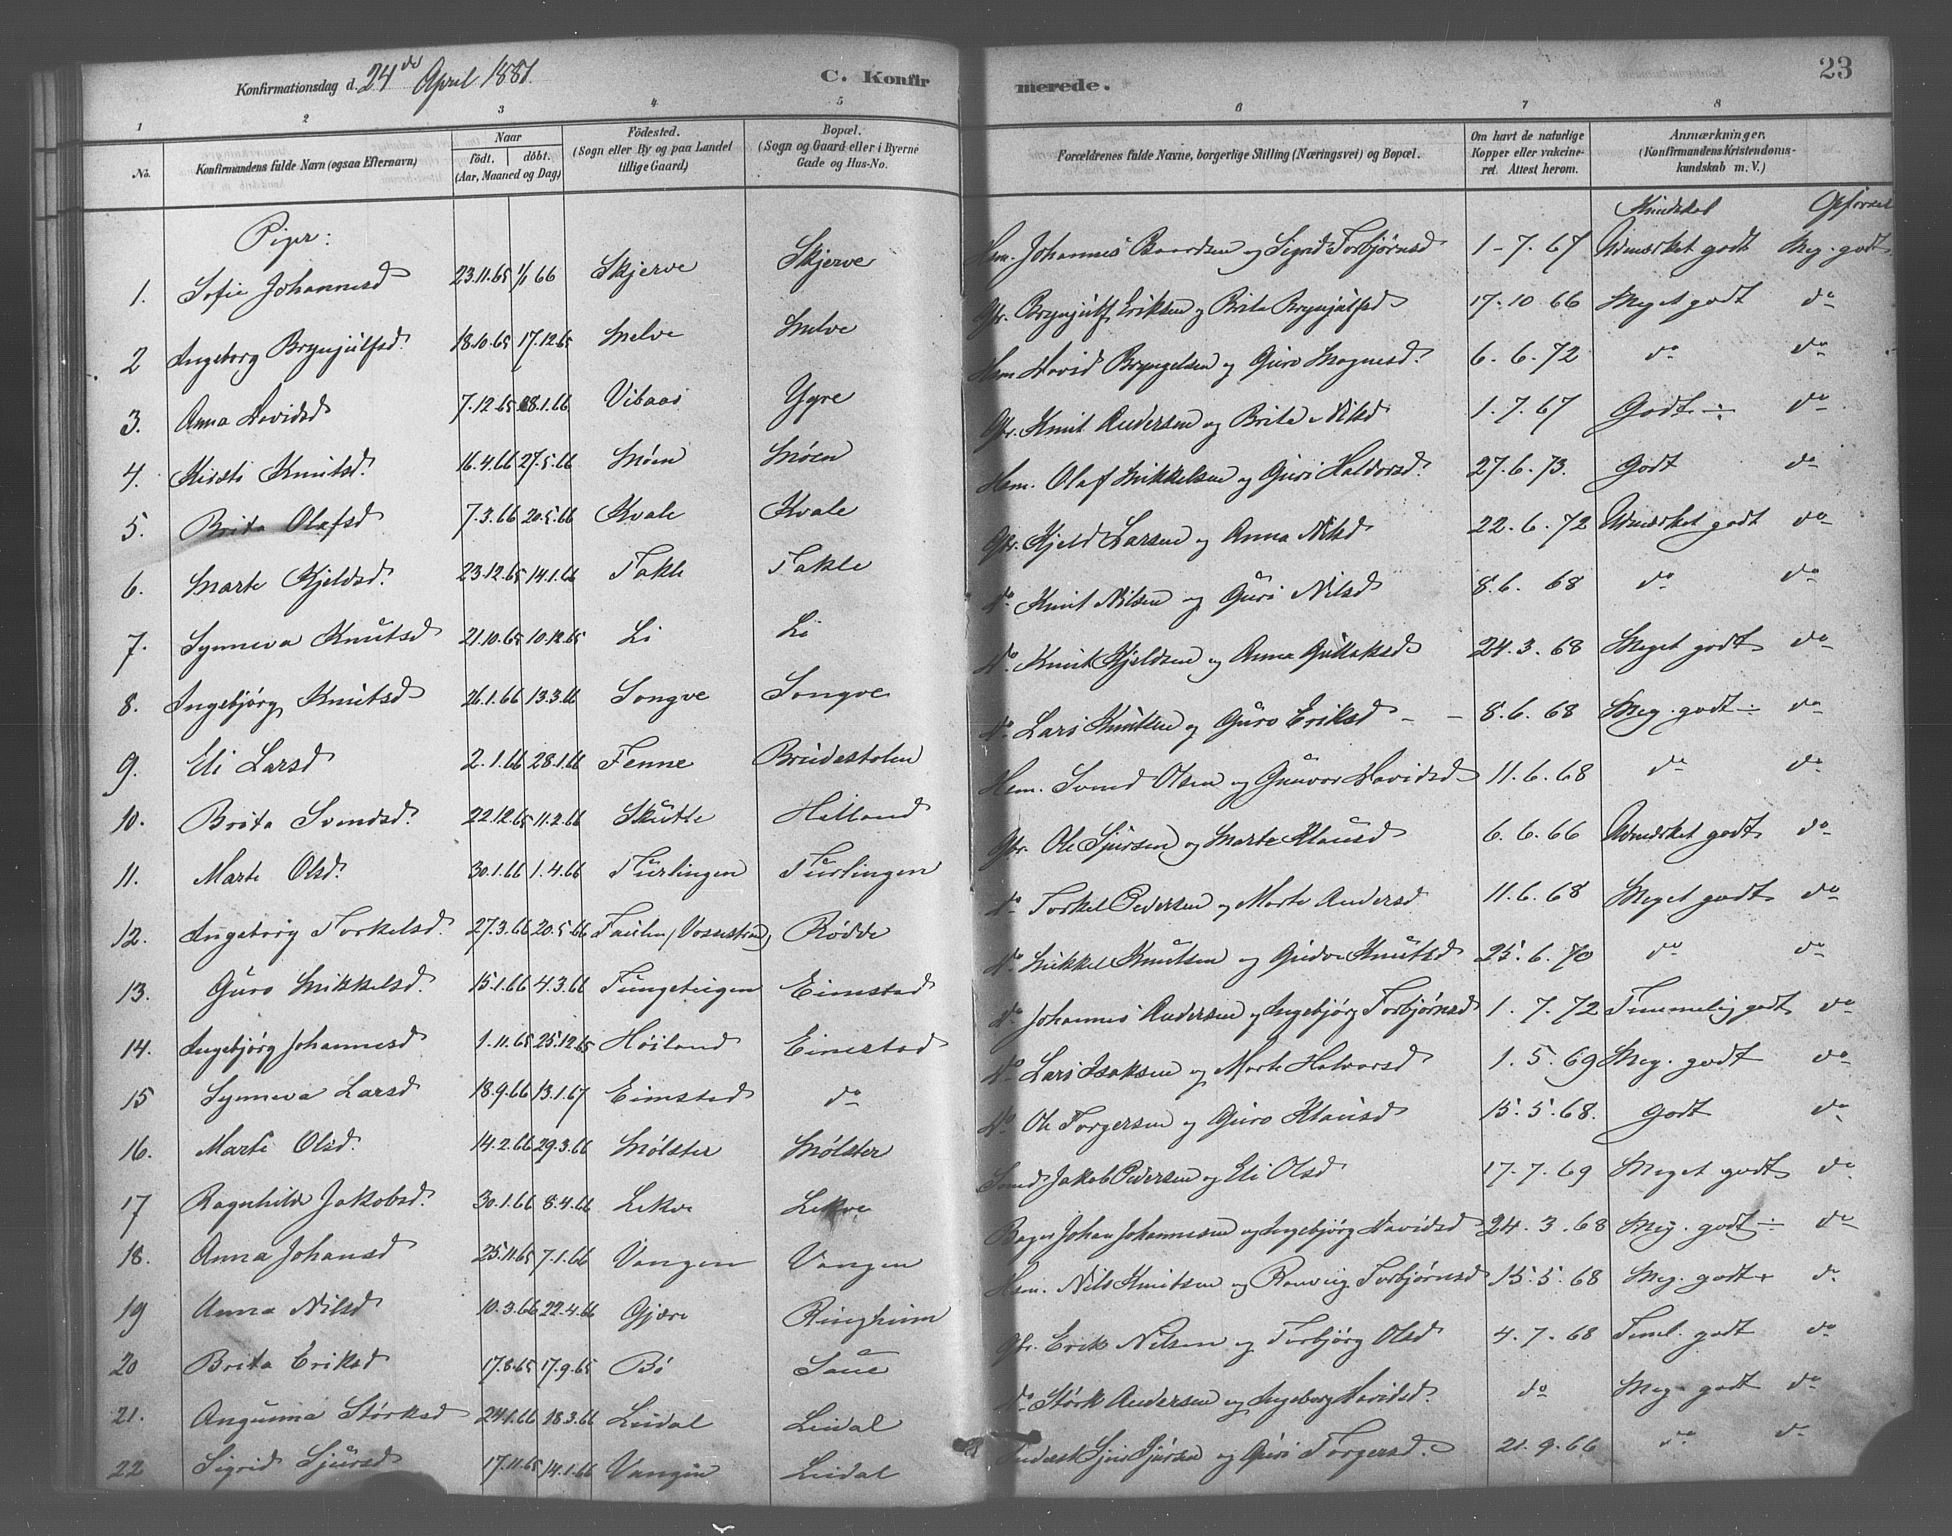 Konfirmationsdag d. 24de April 1881. C. Konfirmerede. 23
1 2 3 4 5 6 7 8
No. Konfirmandens fulde Navn (ogsaa Efternavn) Naar født. døbt. (Aar, Maaned og Dag) Fødested. (Sogn eller By og paa Landet tillige Gaard) Bopæl. (Sogn og Gaard eller i Byerne Gade og Hus-No. Forældrenes fulde Navne, borgerlige Stilling (Næringsvei) og Bopæl. Om havt de naturlige Kopper eller vakcineret. Attest herom. Anmærkninger. (Konfirmandens Kristendomskundskab m. V.)
Piger: Kundskab Opførsel
1. Sofie Johannesd 23.11.65 1/1 66 Skjerve Skjerve Hsm. Johannes Baardsen og Sigrid Torbjørnsd 1-7.67 Udmærket godt Meg. godt
2 Ingeborg Brynjulfsd. 18.10.65 17.12.65 Melve Melve Gbr. Brynjulf Eriksen og Brita Brynjulfsd 17.10.66 Meget godt do
3. Anna Davidsd 7.12.65 28.1.66 Vibaas Ygre Hsm David Bryngelsen og Guro Magnesd. 6.6.72 do do
4. Kristi Knutsd. 16.4.66 27.5.66 Møen Møen Gbr. Knut Andersen og Brita Nilsd 1.7.67 Godt ÷ do
5. Brita Olafsd 7.3.66 20.5.66 Kvale Kvale Hsm. Olaf Mikkelsen og Guri Haldorsd. 27.6.73. Godt do
6. Marte Kjeldsd. 23.12.65 14.1.66 Takle Takle Gbr. Kjeld Larsen og Anna Nilsd 22.6.72 Udmærket godt do
7. Synneva Knutsd 21.10.65 10.12.65 Li Li do Knut Nilsen og Guri Nilsd 8.6.68 do do
8. Ingebjørg Knutsd 26.1.66 13.3.66 Songve Songve do Knut Kjeldsen og Anna Gullaksd 24.3.68 Meget godt do
9. Eli Larsd 2.1.66 28.1.66 Fenne Brudestolen do Lars Knutsen og Guro Eriksd - - 8.6.68 Meg. godt ÷ do
10. Brita Svendsd. 22.12.65 11.2.66 Skutle Helland Hsm. Svend Olsen og Gunvor Davidsd 11.6.68 do do
11. Marte Olsd. 30.1.66 1.4.66 Turlingen Turlingen Gbr. Ole Sjursen og Marte Klausd 6.6.66 Udmærket godt do
12. Ingeborg Torkelsd. 27.3.66 20.5.66 Rødde do Torkel Pedersen og Marte Andersd 11.6.68 Meget godt do
13. Guro Mikkelsd. 15.1.66 4.3.66 Tungeteigen Eimstad do Mikkel Knutsen og Gudve Knutsd 25.6.70 do do
14. Ingebjørg Johannesd 1.11.65 25.12.65 Høiland Eimstad do Johannes Andersen og Ingebjørg Torbjørnsd 1.7.72 Temmelig godt do
15 Synneva Larsd 18.9.66 13.1.67 Eimstad do do Lars Isaksen og Marte Halvorsd 1.5.69 Meg. godt do
16. Marte Olsd. 14.2.66 29.3.66 Mølster Mølster do Ole Torgersen og Guro Klausd 15.5.68. Godt do
17 Ragnhilda Jakobsd. 30.1.66 8.4.66 Lekve Lekve Smed Jakob Pedersen og Eli Olsd 17.7.69 Meget godt do
18. Anna Johansd 25.11.65 7.1.66 Vangen Vangen Bager Johan Johannesen og Ingebjørg Davidsd 24.3.68 Meg. godt ÷ do
19 Anna Nilsd 10.3.66 22.4.66 Gjære Ringheim Hsm. Nils Knutsen og Ranveig Torbjørnsd 15.5.68 Meg. godt + do
20 Brita Eriksd 17.8.65 17.9.65 Bø Saue Gbr. Erik Nilsen og Torbjørg Olsd 4.7.68 Teml. godt do
21. Angunna Størksd 24.1.66 18.3.66 Leidal Leidal do Størk Andersen og Ingeborg Davidsd. do Meg. godt do
22 Sigrid Sjursd 17.11.65 14.1.66 Vangen Leidal Sjur Sjursen og Guri Torgersd. 21.9.66 do do